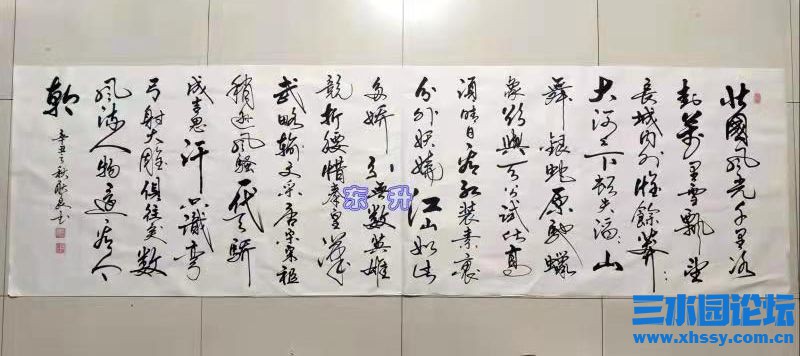 北國風光千里冰
封萬里雪飄望
長城内外惟餘莽:
大河上下頓失滔:山
舞銀蛇原馳蠟
象欲與天公試比高
須晴日看紅装素裹
分外妖嬈江山如此
多嬌引無數英雄
競折腰惜秦皇漢
武略輸文采唐宗宋祖
稍遜風騷一代天驕
成吉思汗只識彎
弓射大雕俱往矣數
風流人物還看今
朝
辛丑之秋
东升
三水园论坛
www.xhssy.com.cn